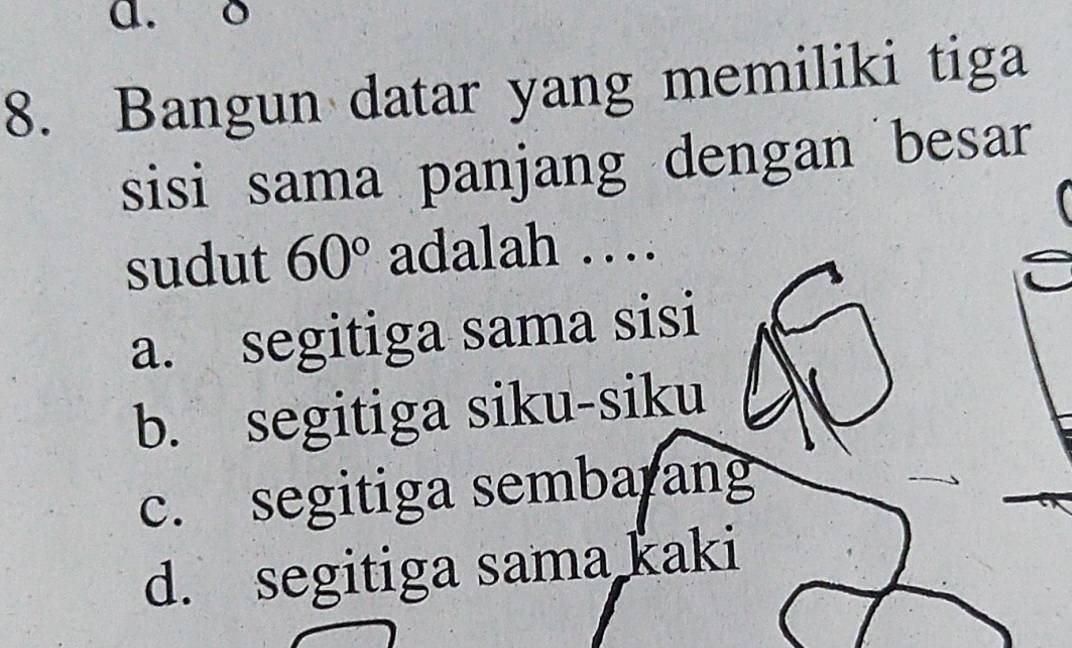 d. 8
8. Bangun datar yang memiliki tiga
sisi sama panjang dengan besar
sudut 60° adalah ....
a. segitiga sama sisi
b. segitiga siku-siku
c. segitiga sembarang
d. segitiga sama kaki